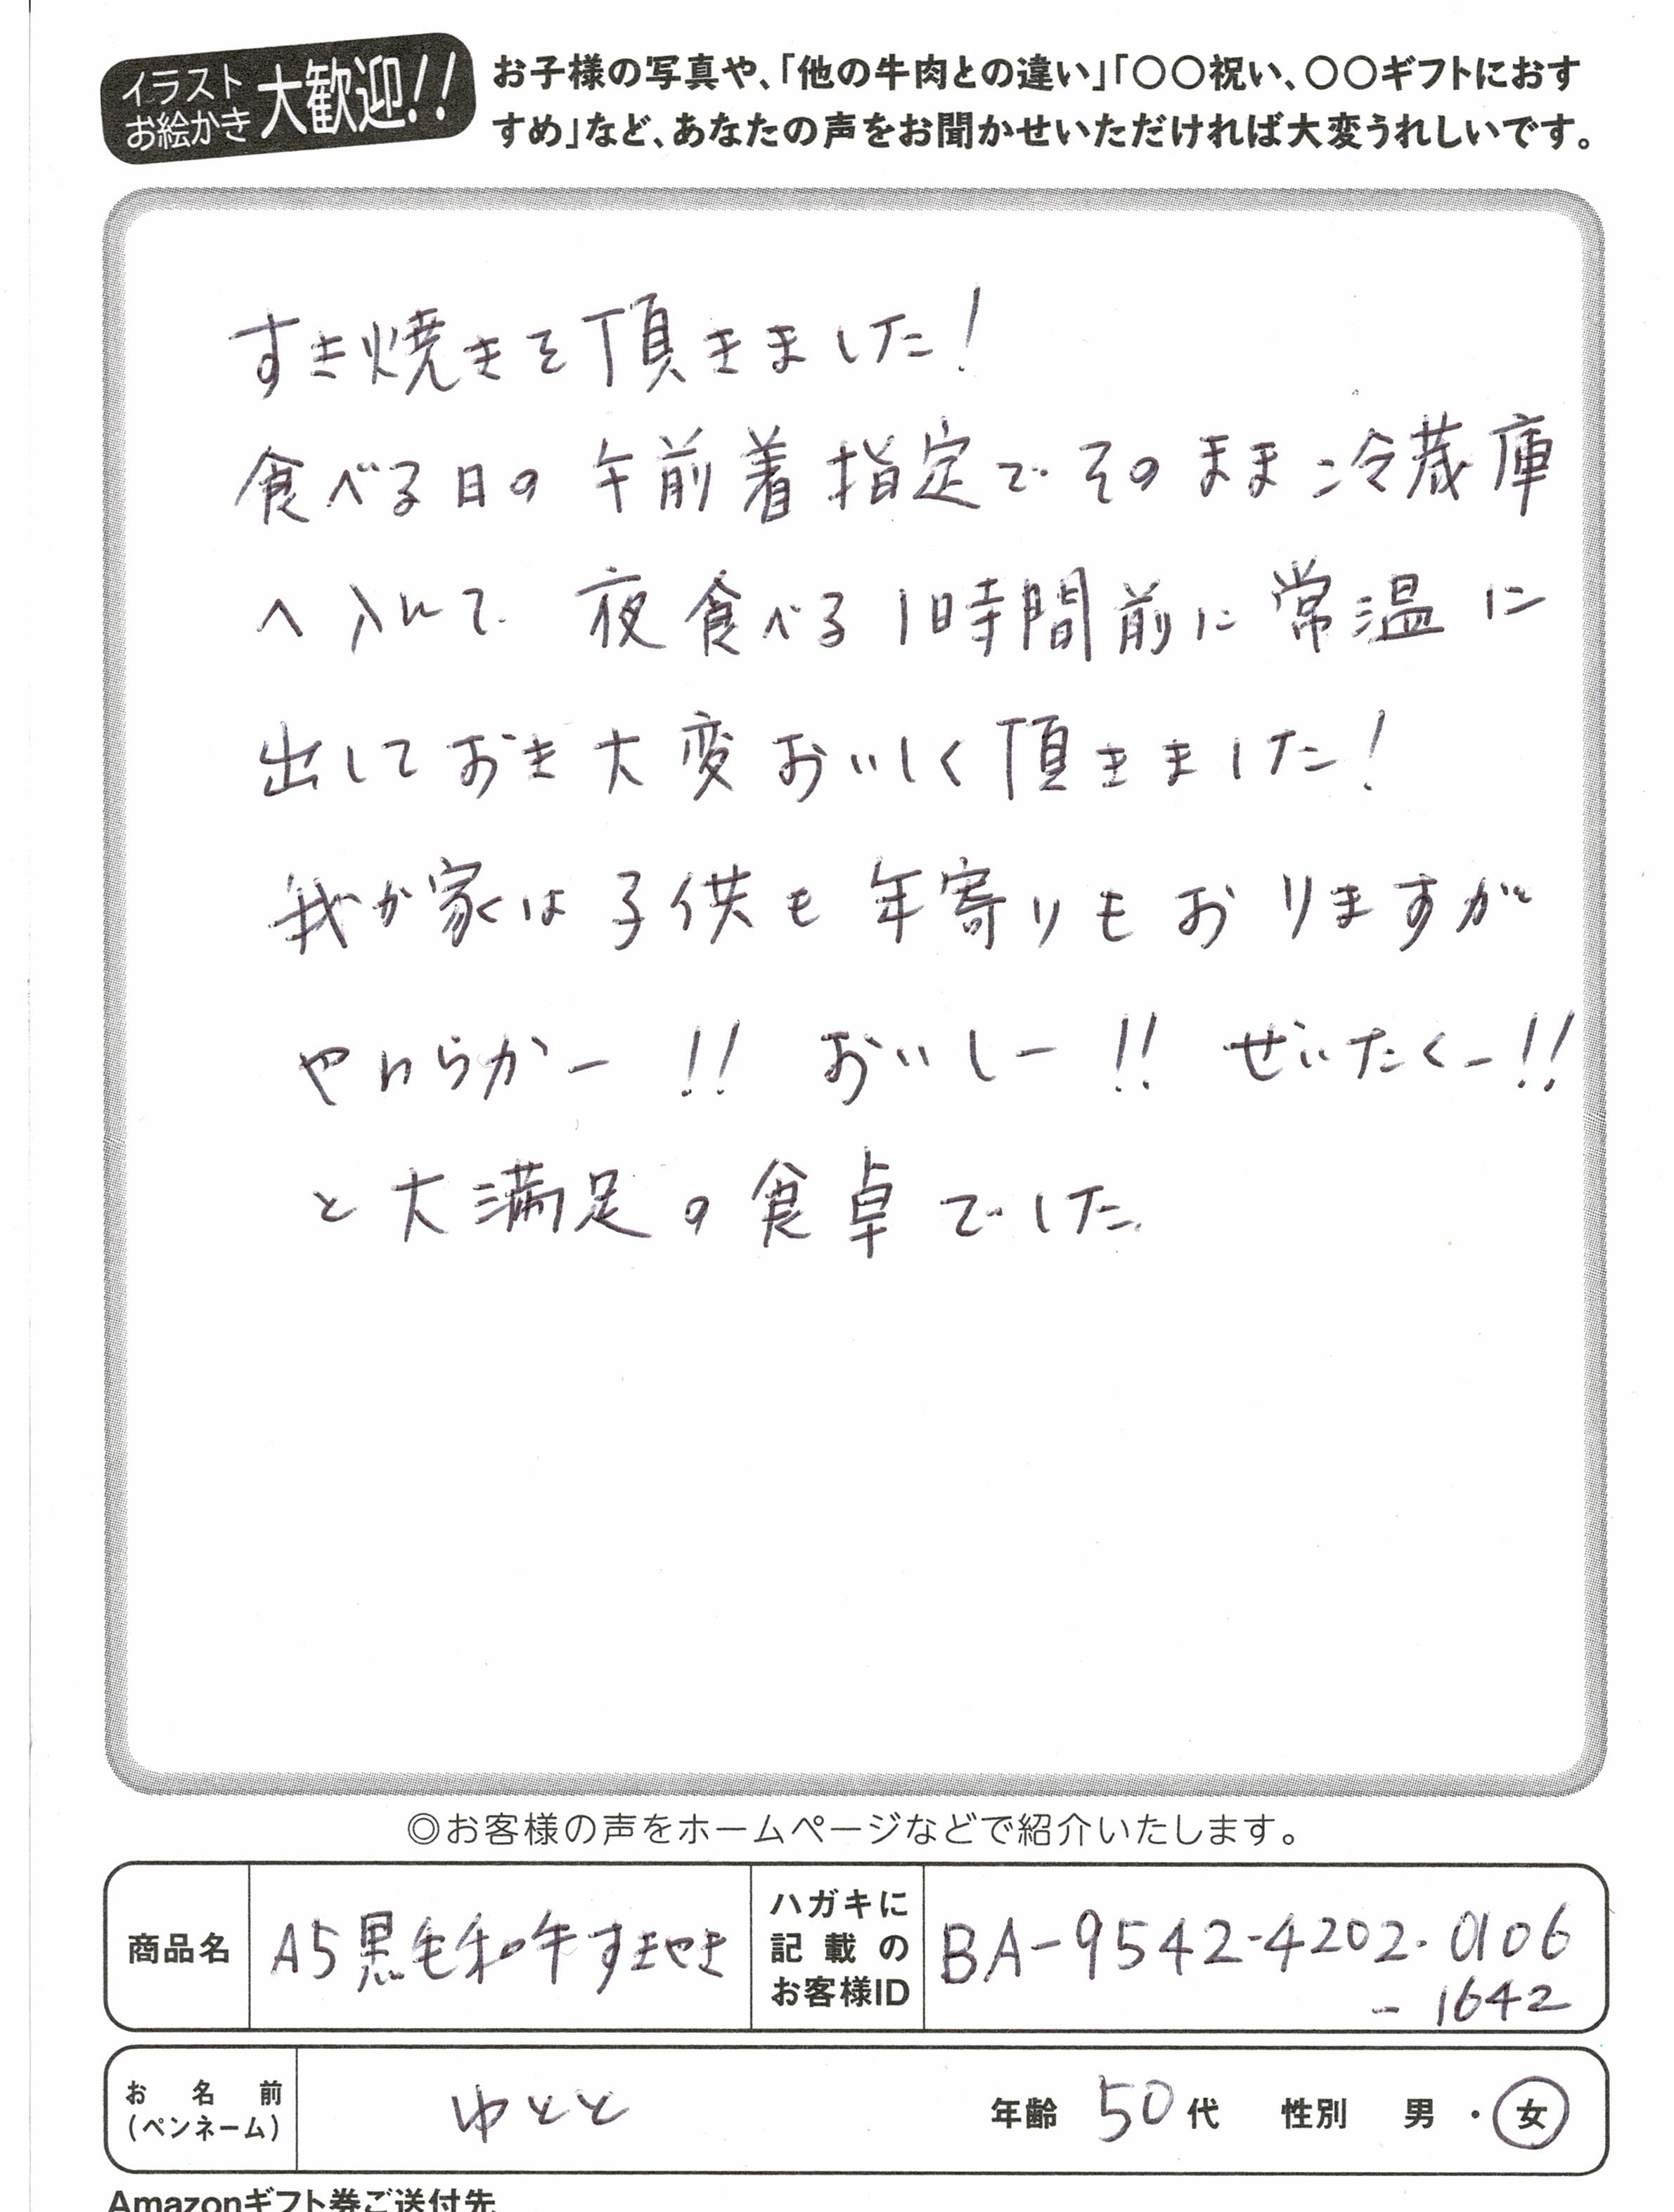 イラスト
お絵かき
大歓迎!!
お子様の写真や、「他の牛肉との違い」「〇〇祝い、〇〇ギフトにおす
すめ」など、あなたの声をお聞かせいただければ大変うれしいです。
すき焼きを頂きました!
食べる日の午前着指定でそのまま冷蔵庫
へ入れて夜食べる1時間前に常温に
出しておき大変おいしく頂きました!
我が家は子供も年寄りもおりますが
やわらかー!! おいしー!! ぜいたくー!!
と大満足の食卓でした
◎お客様の声をホームページなどで紹介いたします。
商品名 A5黒毛和牛すきやき
ハガキに
記載の
お客様ID
BA-9542-4202-0106
-1642
お名前
(ペンネーム)
ゆとと 年齢 50代 性別 男・女
Amazonギフト券ご送付先